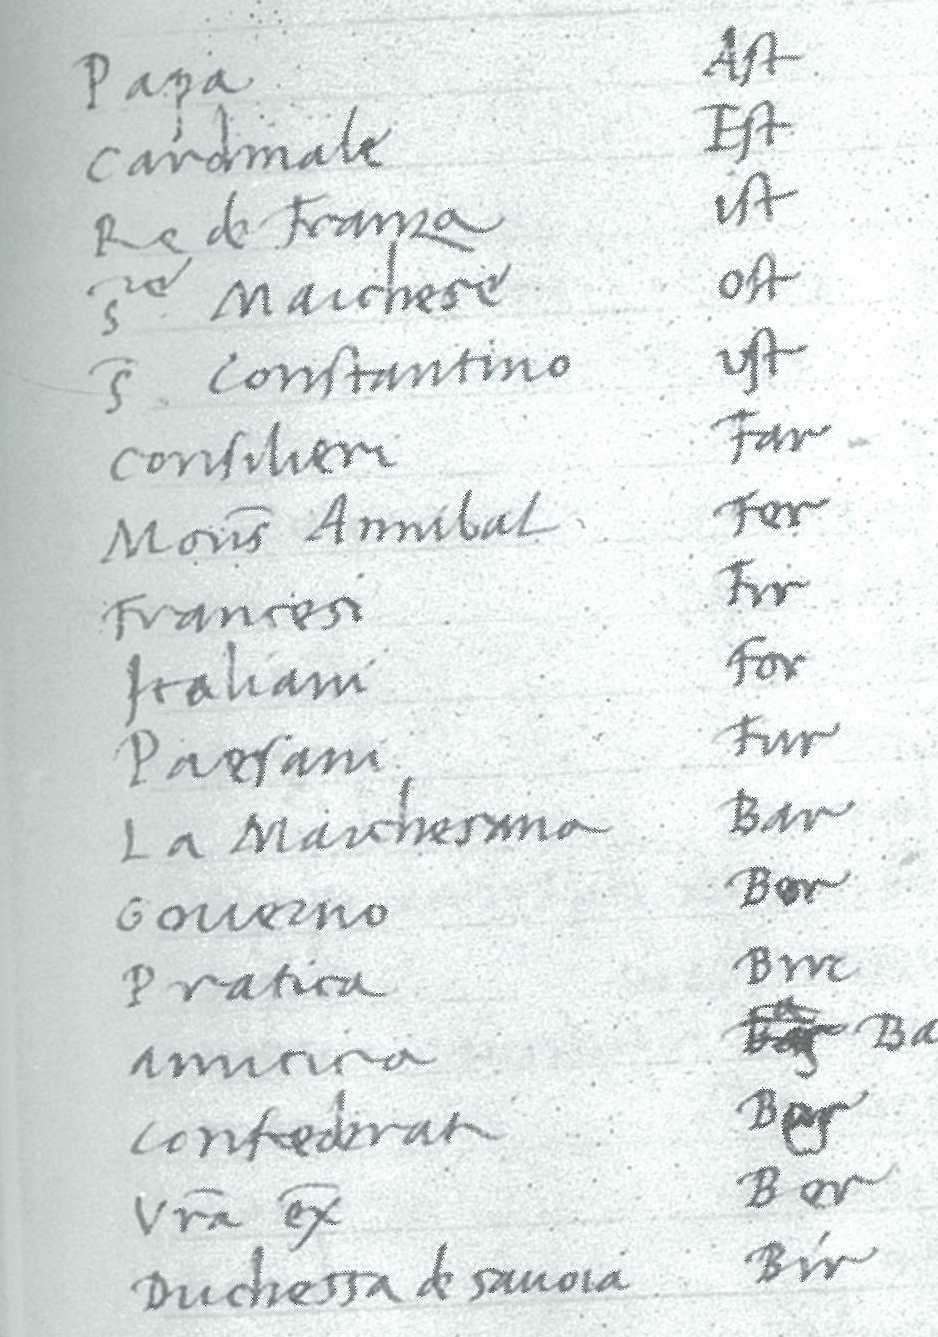 Papa Ast
Cardinale Est
Re de Franza ist
S re Marchese ost
S Constantino ust
Consilieri Far
Mons Annibal Fer
Francesi Fir
Italiani For
Paesani Fur
La Marchesana Bar
Governo Ber
Pratica
amicicia Ba
Confederati
Vra ex Ber
Duchessa de savoia Bir